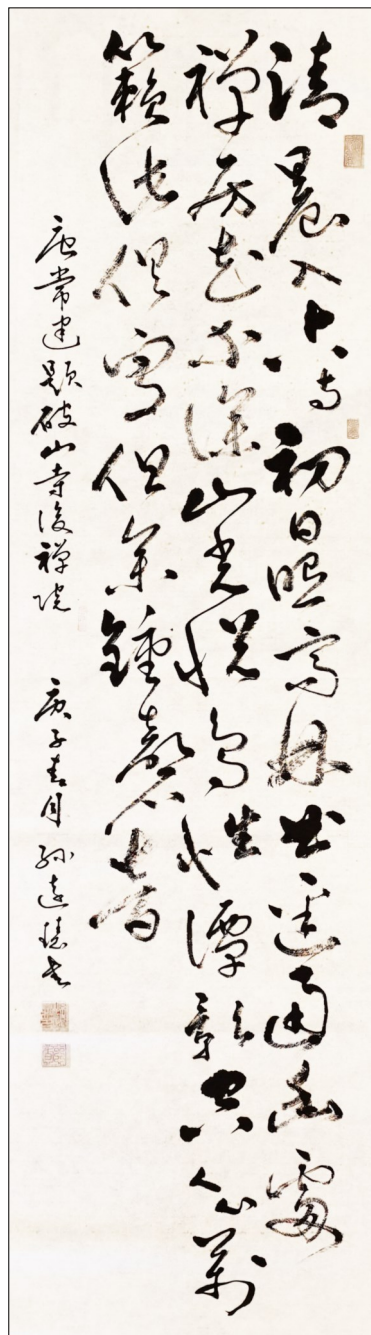 清晨入古寺初日照高林曲逕通幽處
禪房花木深山光悅鳥性潭影空人心萬
籟此俱寂但餘鍾磬音
唐常建題破山寺後禪院 庚子春月 孫書